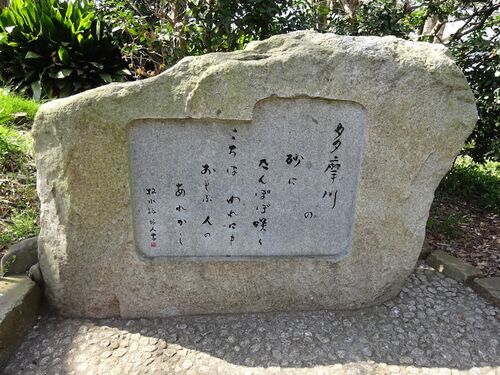 多摩川
の
砂に
たんぽぽ咲く
ころは われにも
おもふ 人の
あれかし
牧水 人書